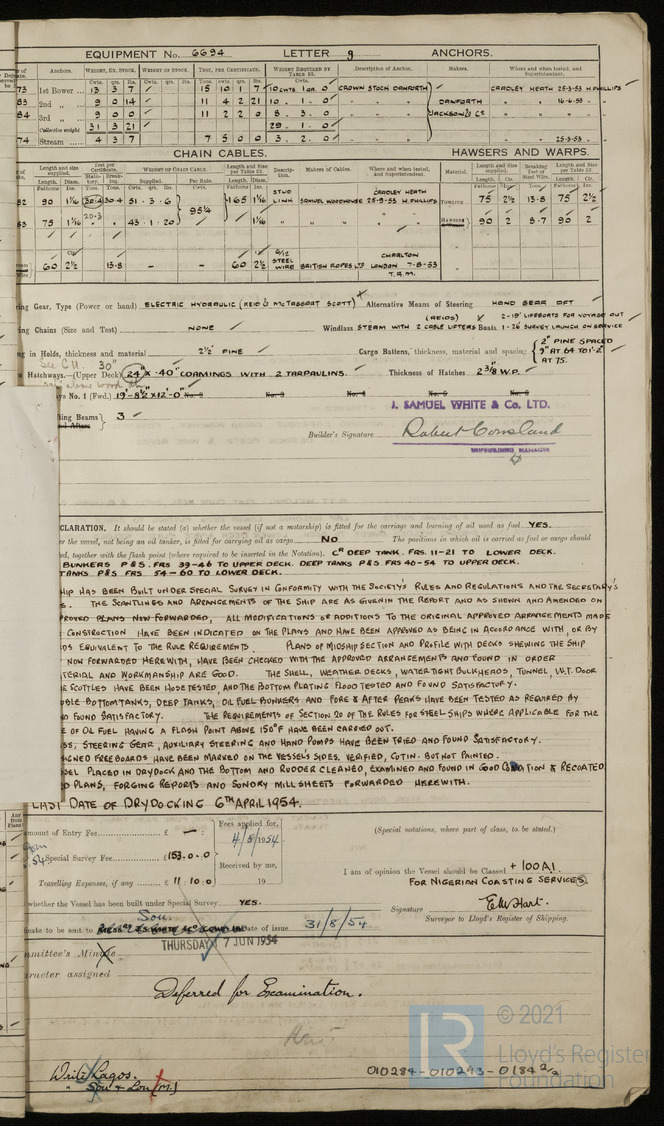 EQUIPMENT No. 6694 LETTER g ANCHORS.
Anchors. WEIGHT, EX. STOCK. WEIGHT OF STOCK. TEST, PER CERTIFICATE. WEIGHT REQUIRED BY TABLE 53. Description of Anchor. Makers. Where and when tested, and Superintendent.
Cwts. qrs. lbs.
73 1st Bower 13 3 7 15 10 1 7 10 CWTS 1 QR. 0 CROWN STOCK DANFORTH CRADLEY HEATH 25-3-53 H. PHILLIPS
83 2nd 9 0 14 11 4 2 21 10 . 1 . 0 DANFORTH 16-6-53
84 3rd 9 0 0 11 2 2 0 8 . 3 . 0 JACKSON & Co
Collective weight 31 3 21 29 . 1 . 0
74 Stream 4 3 7 7 5 0 0 3 . 2 . 0 25-3-53
CHAIN CABLES. HAWSERS AND WARPS.
Length and size supplied. Test per Certificate. WEIGHT OF CHAIN CABLE. Length and size per Table 53. Description. Makers of Cables. Where and when tested, and Superintendent. Material. Length and Size supplied. Breaking Test of Steel Wire. Length and size per Table 53.
Fathoms Diam. Supplied. Per Rule. Length. Diam.
82 90 1 1/16 30.4 51 . 3 . 6 95 1/4 165 1 1/16 STUD LINK SAMUEL WOODHOUSE CRADLEY HEATH 25-3-53 H. PHILLIPS TOWLINE 75 2 1/2 13.8 75 2 1/2
83 75 1 1/16 20.3 43 . 1 . 20 1 1/16 HAWSERS 90 2 8.7 90 2
60 2 1/2 13.8 – – 60 2 1/2 6/12 STEEL WIRE BRITISH ROPES LTD CHARLTON LONDON 7-8-53 T.R.M.
ring Gear, Type (Power or hand) ELECTRIC HYDRAULIC (REID & McTAGGART SCOTT) Alternative Means of Steering HAND GEAR AFT
ing Chains (Size and Test) NONE Windlass (REIDS) STEAM WITH 2 CABLE LIFTERS Boats 2-19' LIFEBOATS FOR VOYAGE OUT 1-26' SURVEY LAUNCH ON SERVICE
ng in Holds, thickness and material 2 1/2" PINE Cargo Battens, thickness, material and spacing 2" PINE SPACED 9" AT 64 TO 1'-2" AT 75.
30"
Hatchways.—(Upper Deck) 24" x .40" COAMINGS WITH 2 TARPAULINS. Thickness of Hatches 2 3/8" W.P.
ys No. 1 (Fwd.) 19'-8 1/2" x 12'-0" No. 2 No. 3 No. 4 No. 5 No. 6
ting Beams 3
J. SAMUEL WHITE & Co. LTD.
Builder's Signature
SHIPBUILDING MANAGER
CLARATION. It should be stated (a) whether the vessel (if not a motorship) is fitted for the carriage and burning of oil used as fuel YES.
er the vessel, not being an oil tanker, is fitted for carrying oil as cargo No The positions in which oil is carried as fuel or cargo should
ed, together with the flash point (where required to be inserted in the Notation). Cr DEEP TANK. FRS. 11-21 TO LOWER DECK.
BUNKERS P & S. FRS 39-46 TO UPPER DECK. DEEP TANKS P & S FRS 46-54 TO UPPER DECK.
TANKS P & S FRS 54-60 TO LOWER DECK.
HIP HAS BEEN BUILT UNDER SPECIAL SURVEY IN CONFORMITY WITH THE SOCIETY'S RULES AND REGULATIONS AND THE SECRETARY'S
S. THE SCANTLINGS AND ARRANGEMENTS OF THE SHIP ARE AS GIVEN IN THE REPORT AND AS SHEWN AND AMENDED ON
PROVED PLANS NOW FORWARDED, ALL MODIFICATIONS OR ADDITIONS TO THE ORIGINAL APPROVED ARRANGEMENTS MADE
CONSTRUCTION HAVE BEEN INDICATED ON THE PLANS AND HAVE BEEN APPROVED AS BEING IN ACCORDANCE WITH, OR BY
DS EQUIVALENT TO THE RULE REQUIREMENTS. PLANS OF MIDSHIP SECTION AND PROFILE WITH DECKS SHEWING THE SHIP
NOW FORWARDED HEREWITH, HAVE BEEN CHECKED WITH THE APPROVED ARRANGEMENTS AND FOUND IN ORDER
TERIAL AND WORKMANSHIP ARE GOOD. THE SHELL, WEATHER DECKS, WATERTIGHT BULKHEADS, TUNNEL, W.T. DOOR
R SCUTTLES HAVE BEEN HOSE TESTED, AND THE BOTTOM PLATING FLOOD TESTED AND FOUND SATISFACTORY.
BLE BOTTOM TANKS, DEEP TANKS, OIL FUEL BUNKERS AND FORE & AFTER PEAKS HAVE BEEN TESTED AS REQUIRED BY
ND FOUND SATISFACTORY. THE REQUIREMENTS OF SECTION 20 OF THE RULES FOR STEEL SHIPS WHERE APPLICABLE FOR THE
E OF OIL FUEL HAVING A FLASH POINT ABOVE 150°F HAVE BEEN CARRIED OUT.
SS, STEERING GEAR, AUXILIARY STEERING AND HAND PUMPS HAVE BEEN TRIED AND FOUND SATISFACTORY.
IGNED FREEBOARDS HAVE BEEN MARKED ON THE VESSEL'S SIDES, VERIFIED, CUT IN BUT NOT PAINTED.
SEL PLACED IN DRYDOCK AND THE BOTTOM AND RUDDER CLEANED, EXAMINED AND FOUND IN GOOD CONDITION & RECOATED.
D PLANS, FORGING REPORTS AND SUNDRY MILL SHEETS FORWARDED HEREWITH.
LAST DATE OF DRYDOCKING 6TH APRIL 1954.
amount of Entry Fee £ – : Fees applied for, 4/5/1954 (Special notations, where part of class, to be stated.)
Special Survey Fee £ 153.0.0 Received by me, I am of opinion the Vessel should be Classed + 100A1
Travelling Expenses, if any £ 11 : 10 . 0 19 FOR NIGERIAN COASTING SERVICES.
whether the Vessel has been built under Special Survey YES. Signature
Sou. Surveyor to Lloyd's Register of Shipping.
cate to be sent to Date of issue 31/8/54
mmittee's Minute THURSDAY 17 JUN 1954
aracter assigned
Deferred for Examination.
Write Lagos.
" Sou & Lon (M.)
010284-010293-0184 2/2
LR
© 2021
Lloyd's Register
Foundation